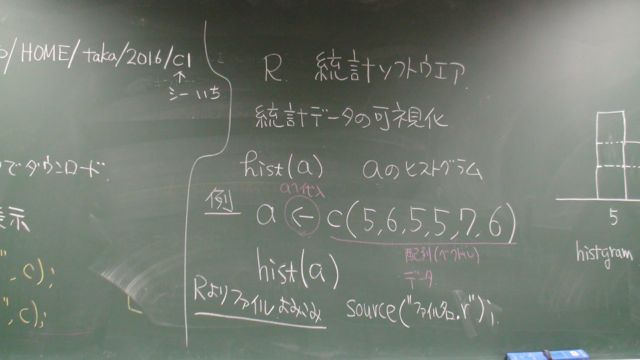 /HOME/taka/2016/C1
↑
シーいち
でダウンロード
表示
", c);
", c);
R 統計ソフトウエア
統計データの可視化
hist(a) aのヒストグラム
例 a ← c(5,6,5,5,7,6)
aへ代入
配列(ベクトル)
データ
hist(a)
Rよりファイルよみこみ source("ファイル名.r");
5
histgram